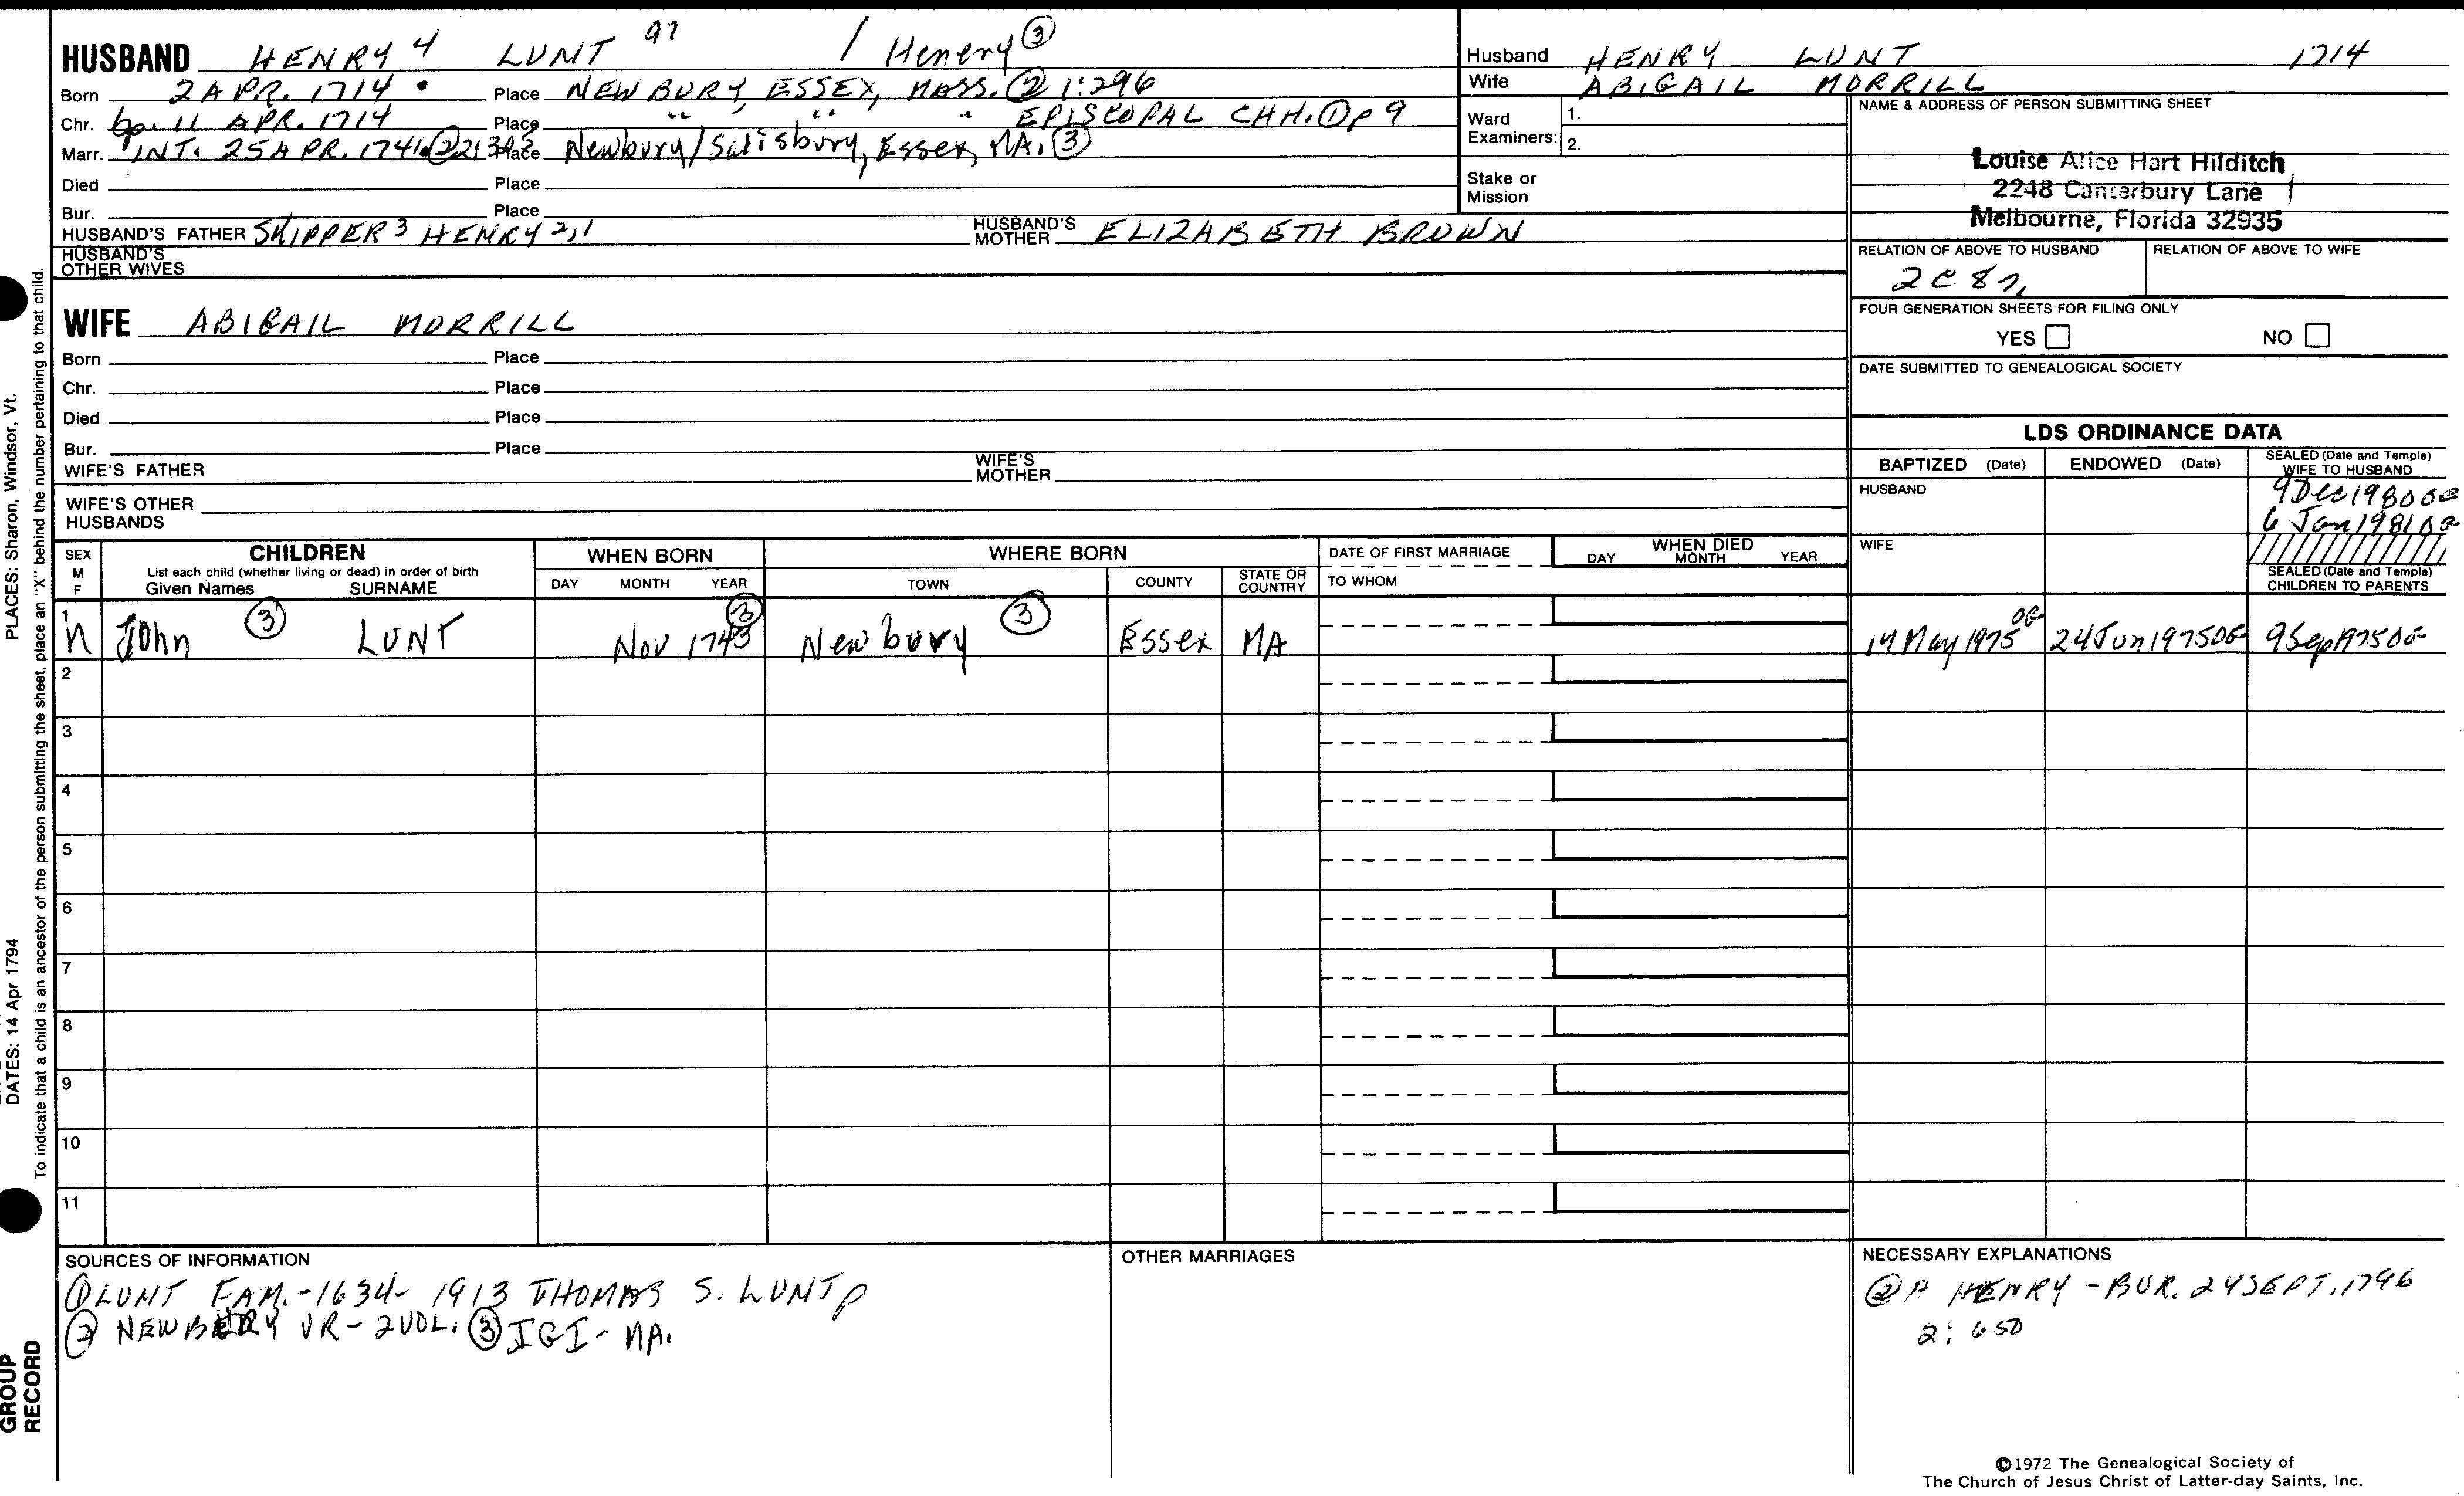 HUSBAND HENRY 4 LUNT 97 / Henery ③
Born 2 APR. 1714 Place NEWBURY, ESSEX, MASS. ② 1:296
Chr. bp. 11 APR. 1714 Place " " " EPISCOPAL CHH. ① p 9
Marr. INT. 25 APR. 1741 ② Place Newbury/Salisbury, Essex, MA. ③
Died Place
Bur. Place
HUSBAND'S FATHER SKIPPER 3 HENRY 2,1 HUSBAND'S MOTHER ELIZABETH BROWN
HUSBAND'S OTHER WIVES
WIFE ABIGAIL MORRILL
Born Place
Chr. Place
Died Place
Bur. Place
WIFE'S FATHER WIFE'S MOTHER
WIFE'S OTHER HUSBANDS
Husband HENRY LUNT 1714
Wife ABIGAIL MORRILL
Ward Examiners: 1.
2.
Stake or Mission
NAME & ADDRESS OF PERSON SUBMITTING SHEET
Louise Alice Hart Hilditch
2248 Canterbury Lane
Melbourne, Florida 32935
RELATION OF ABOVE TO HUSBAND RELATION OF ABOVE TO WIFE
2C 8
FOUR GENERATION SHEETS FOR FILING ONLY
YES NO
DATE SUBMITTED TO GENEALOGICAL SOCIETY
LDS ORDINANCE DATA
BAPTIZED (Date) ENDOWED (Date) SEALED (Date and Temple) WIFE TO HUSBAND
HUSBAND 9 Dec 1980
6 Jan 1981
WIFE
SEALED (Date and Temple) CHILDREN TO PARENTS
SEX M F CHILDREN WHEN BORN WHERE BORN DATE OF FIRST MARRIAGE WHEN DIED
List each child (whether living or dead) in order of birth
Given Names SURNAME DAY MONTH YEAR TOWN COUNTY STATE OR COUNTRY TO WHOM DAY MONTH YEAR
1 M John ③ LUNT Nov 1743 ③ Newbury ③ Essex MA 14 May 1975 OG 24 Jun 1975 OG 9 Sep 1975 OG
2
3
4
5
6
7
8
9
10
11
SOURCES OF INFORMATION
① LUNT FAM.-1634-1913 THOMAS S. LUNT p
② NEWBERRY VR - 2 VOL. ③ IGI - MA.
OTHER MARRIAGES
NECESSARY EXPLANATIONS
② A HENRY - BUR. 24 SEPT. 1796
2: 650
©1972 The Genealogical Society of
The Church of Jesus Christ of Latter-day Saints, Inc.
PLACES: Sharon, Windsor, Vt.
DATES: 14 Apr 1794
To indicate that a child is an ancestor of the person submitting the sheet, place an "X" behind the number pertaining to that child.
GROUP
RECORD